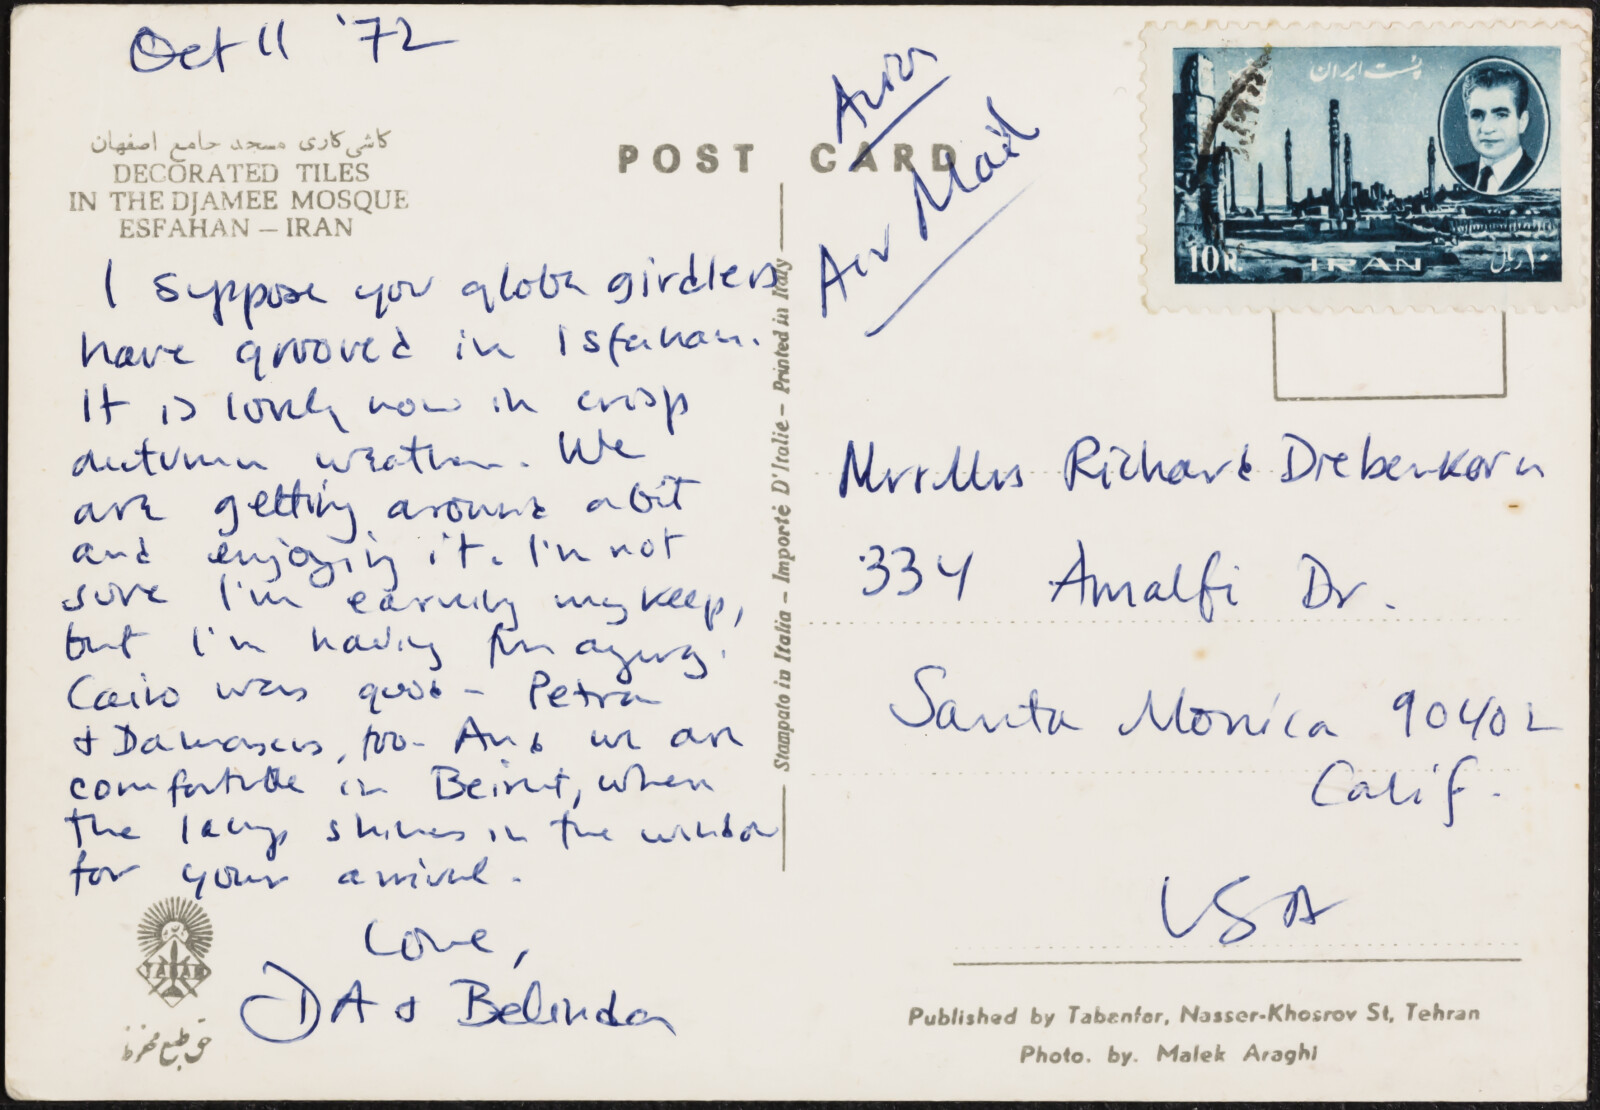 Oct 11 '72
کاشی کاری مسجد جامع اصفهان
DECORATED TILES
IN THE DJAMEE MOSQUE
ESFAHAN – IRAN
I suppose you globe girdlers
have grooved in Isfahan.
It is lovely now in crisp
autumn weather. We
are getting around a bit
and enjoying it. I'm not
sure I'm earning my keep,
but I'm having fun
Cairo was good – Petra
& Damascus, too – And we are
comfortable in Beirut, when
the lamp shines in the window
for your arrival.
Love,
DA & Belinda
TABAN
حق طبع محفوظ
Stampato in Italia – Importé D'Italie – Printed in Italy
POST CARD
Avion
Air Mail
پست ایران
10 R.
IRAN
۱۰ ریال
Mr & Mrs Richard Diebenkorn
334 Amalfi Dr.
Santa Monica 90402
Calif.
USA
Published by Tabanfar, Nasser-Khosrov St, Tehran
Photo. by. Malek Araghi